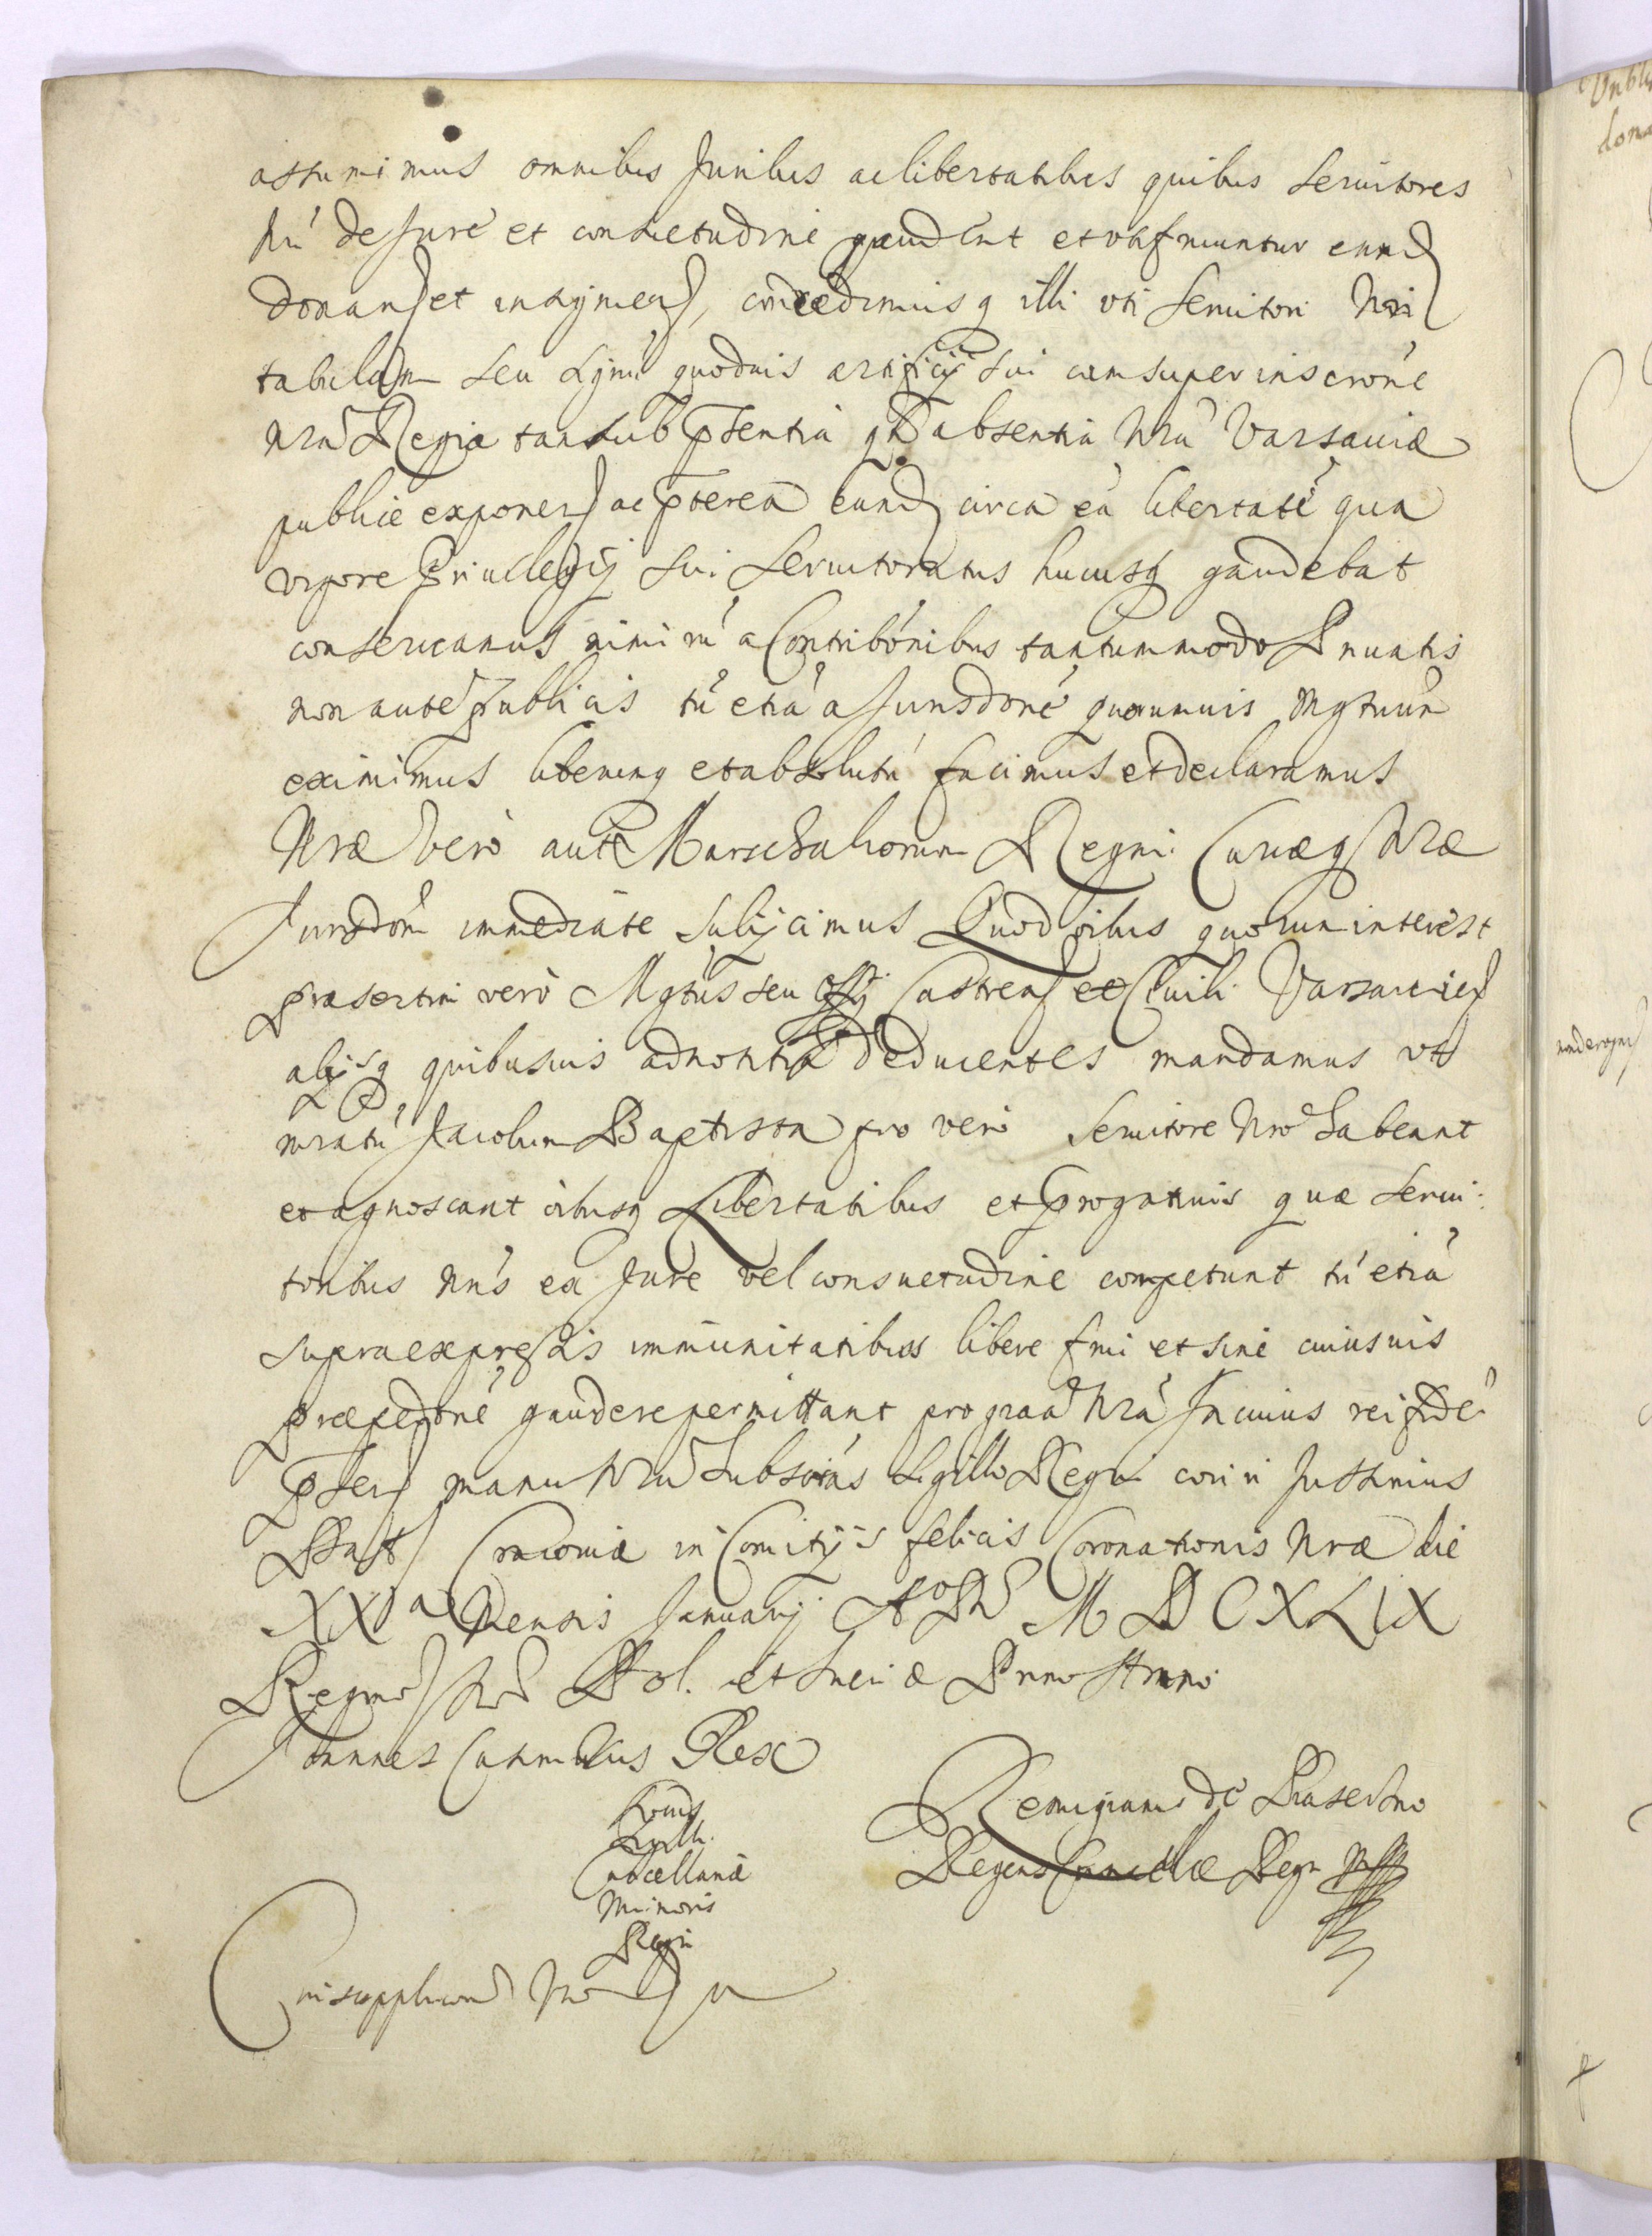 assumimus omnibus Juribus ac libertatibus quibus Seruitores
Nri de Jure et consuetudine gaudent et vtifruuntur eund
donand et insigniend, concedimusq illi vti Seruitori Nri
tabulam seu signu quoduis artificij sui cum superinscrone
nra Regia tam sub psentia q absentia Nra Varsauiæ
publice exponend ac pterea eund circa ea libertate qua
vigore Priuilegij sui Seruitoratus hucusq gaudebat
conseruamus nimiru a Contribonibus tantummodo Priuatis
non aute publicis tu etia a Jurisdone quorumuis Mgtuum
eximimus liberumq et absolutu facimus et declaramus
Nræ vero aut Marschalcorum Regni Curiæq Nræ
Jurisdoni immediate subijcimus Quod oibus quorum interest
præsertim vero Mgtus seu Offij Castren et Ciuili Varsauien
alijsq quibusuis ad notitia deducentes mandamus vt
nratu Jacobum Baptista pro vero Seruitore Nro habeant
et agnoscant oibusq Libertatibus et progatiuis quæ Serui:
toribus Nris ex Jure vel consuetudine competunt tu etia
supraexpressis immunitatibus libere frui et sine cuiusuis
præpedone gaudere permittant pro graa Nra In cuius rei fide
psen manu Nra Subscras Sigillo Regni coiri Jussimus
Dat Cracouiæ in Comitijs felicis Coronationis Nræ die
XX a Mensis Januarij Ao Dni M D C X L I X
Regnor Nror Pol. et Sueciæ Primo Anno
Joannes Casimirus Rex
Locus
Sigilli
Cancellariæ
Minoris
Regni
Remigianus de Piasecno
Regens Cancellariæ Regni
Cui supplicaoni Nos
Vnbli
dona